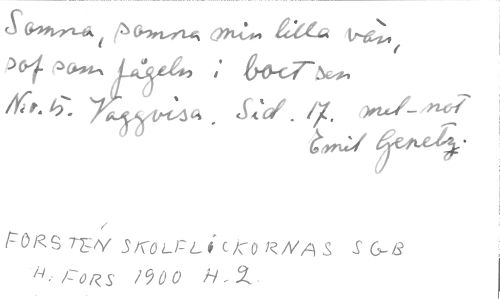 Somna, somna min lilla vän,
sof som fågeln i boet sen
N:r. 5. Vaggvisa. Sid. 17. mel-not
Emil Genetz.
FORSTÉN SKOLFLICKORNAS SGB
H:FORS 1900 H.2.